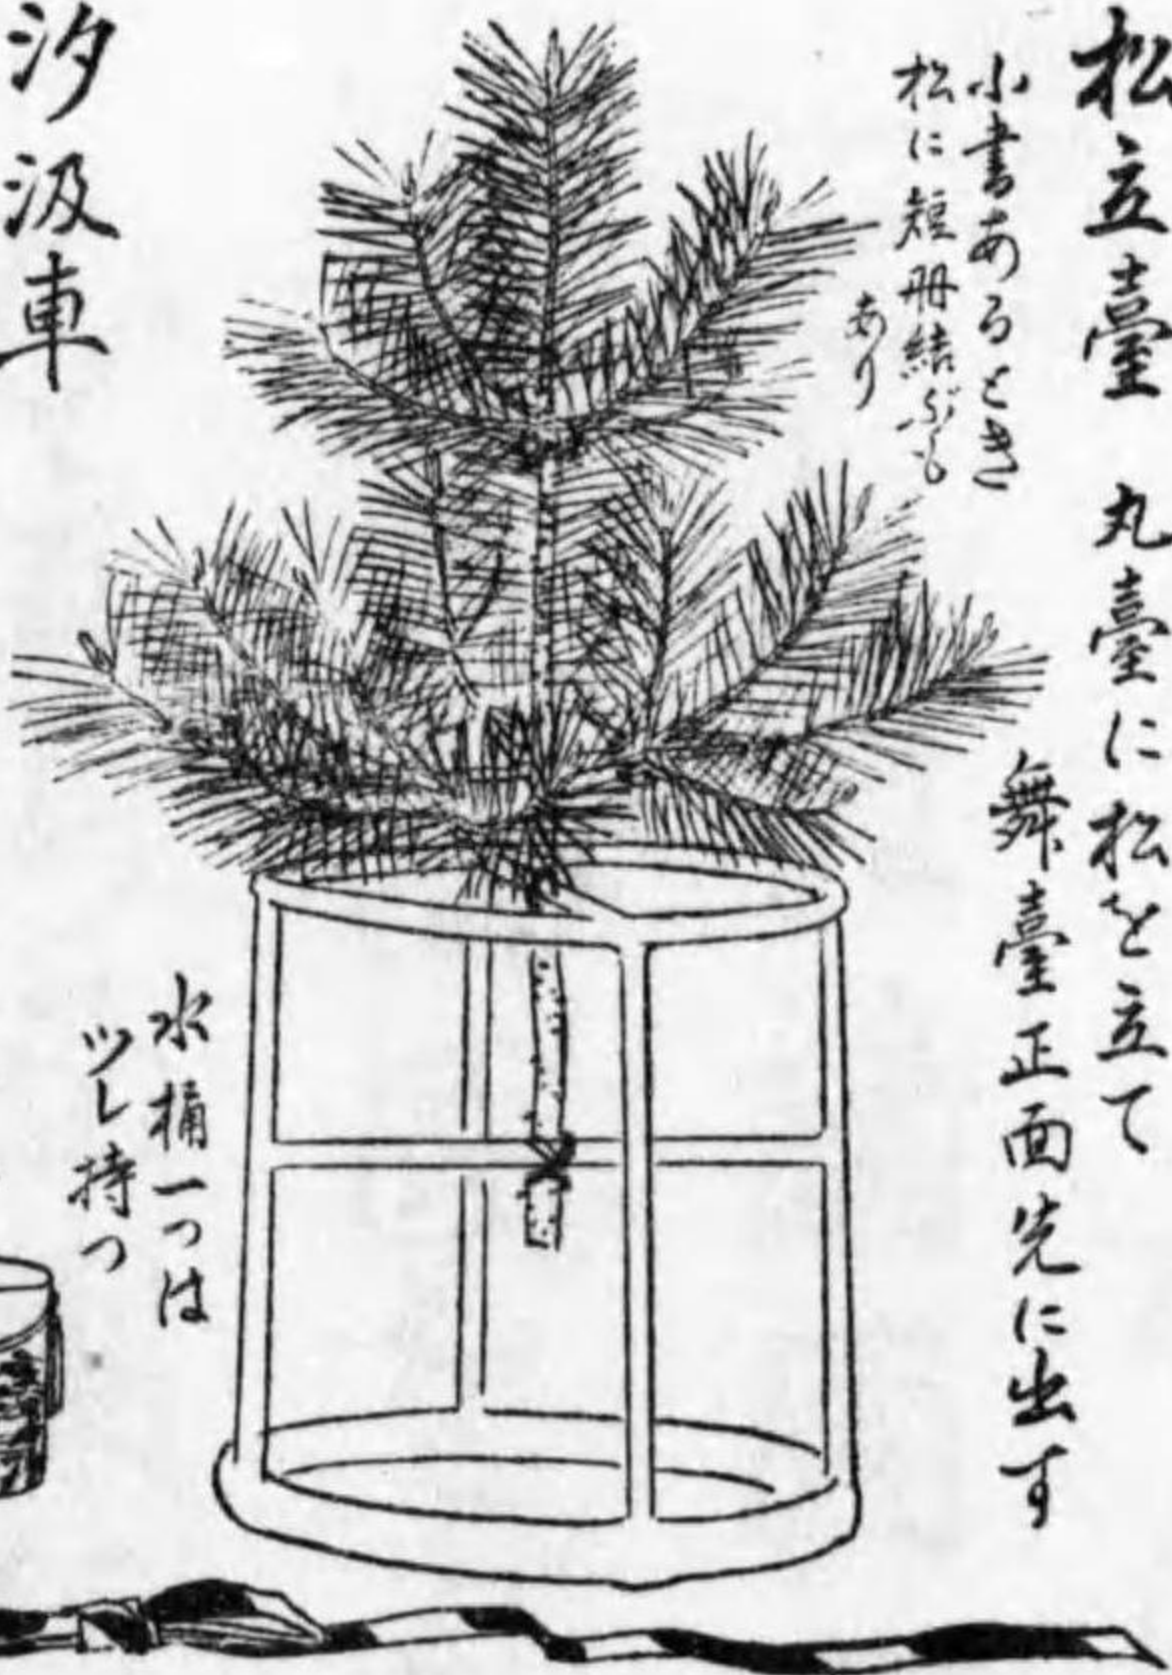 松立臺 丸臺に松を立て
舞臺正面先に出す
小書あるとき
松に短冊結ぶも
あり
汐汲車
水桶一つは
ツレ持つ